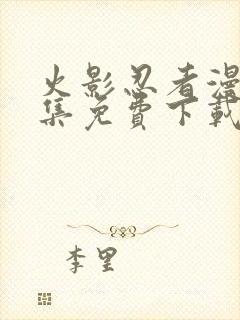 火影忍者漫
集免费下载
李里